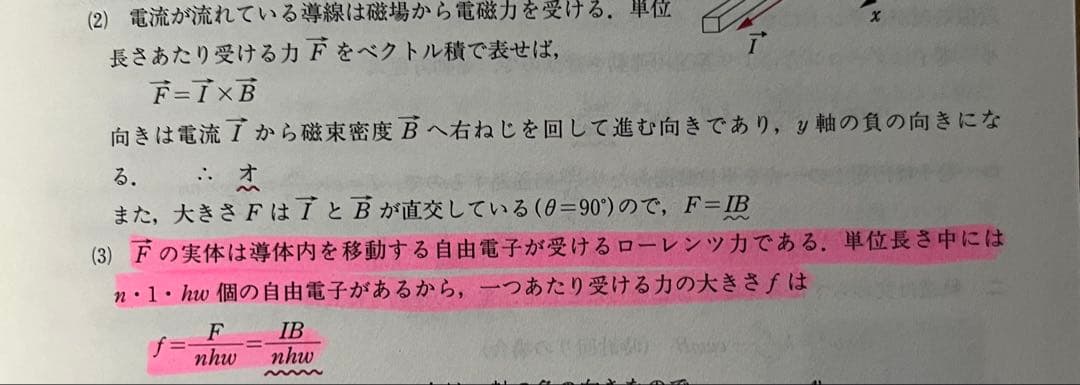 (2) 電流が流れている導線は磁場から電磁力を受ける．単位
x
I⃗
長さあたり受ける力 F⃗ をベクトル積で表せば，
F⃗＝I⃗×B⃗
向きは電流 I⃗ から磁束密度 B⃗ へ右ねじを回して進む向きであり，y 軸の負の向きにな
る． ∴ オ
また，大きさ F は I⃗ と B⃗ が直交している(θ＝90°)ので，F＝IB
(3) F⃗ の実体は導体内を移動する自由電子が受けるローレンツ力である．単位長さ中には
n・1・hw 個の自由電子があるから，一つあたり受ける力の大きさ f は
f＝F/nhw＝IB/nhw